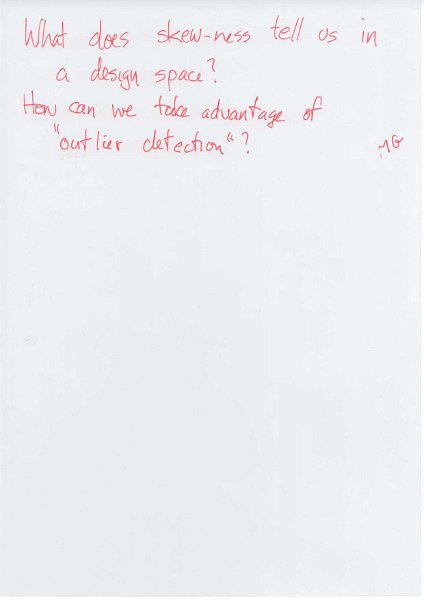 What does skew-ness tell us in
a design space?
How can we take advantage of
"outlier detection"?
MG